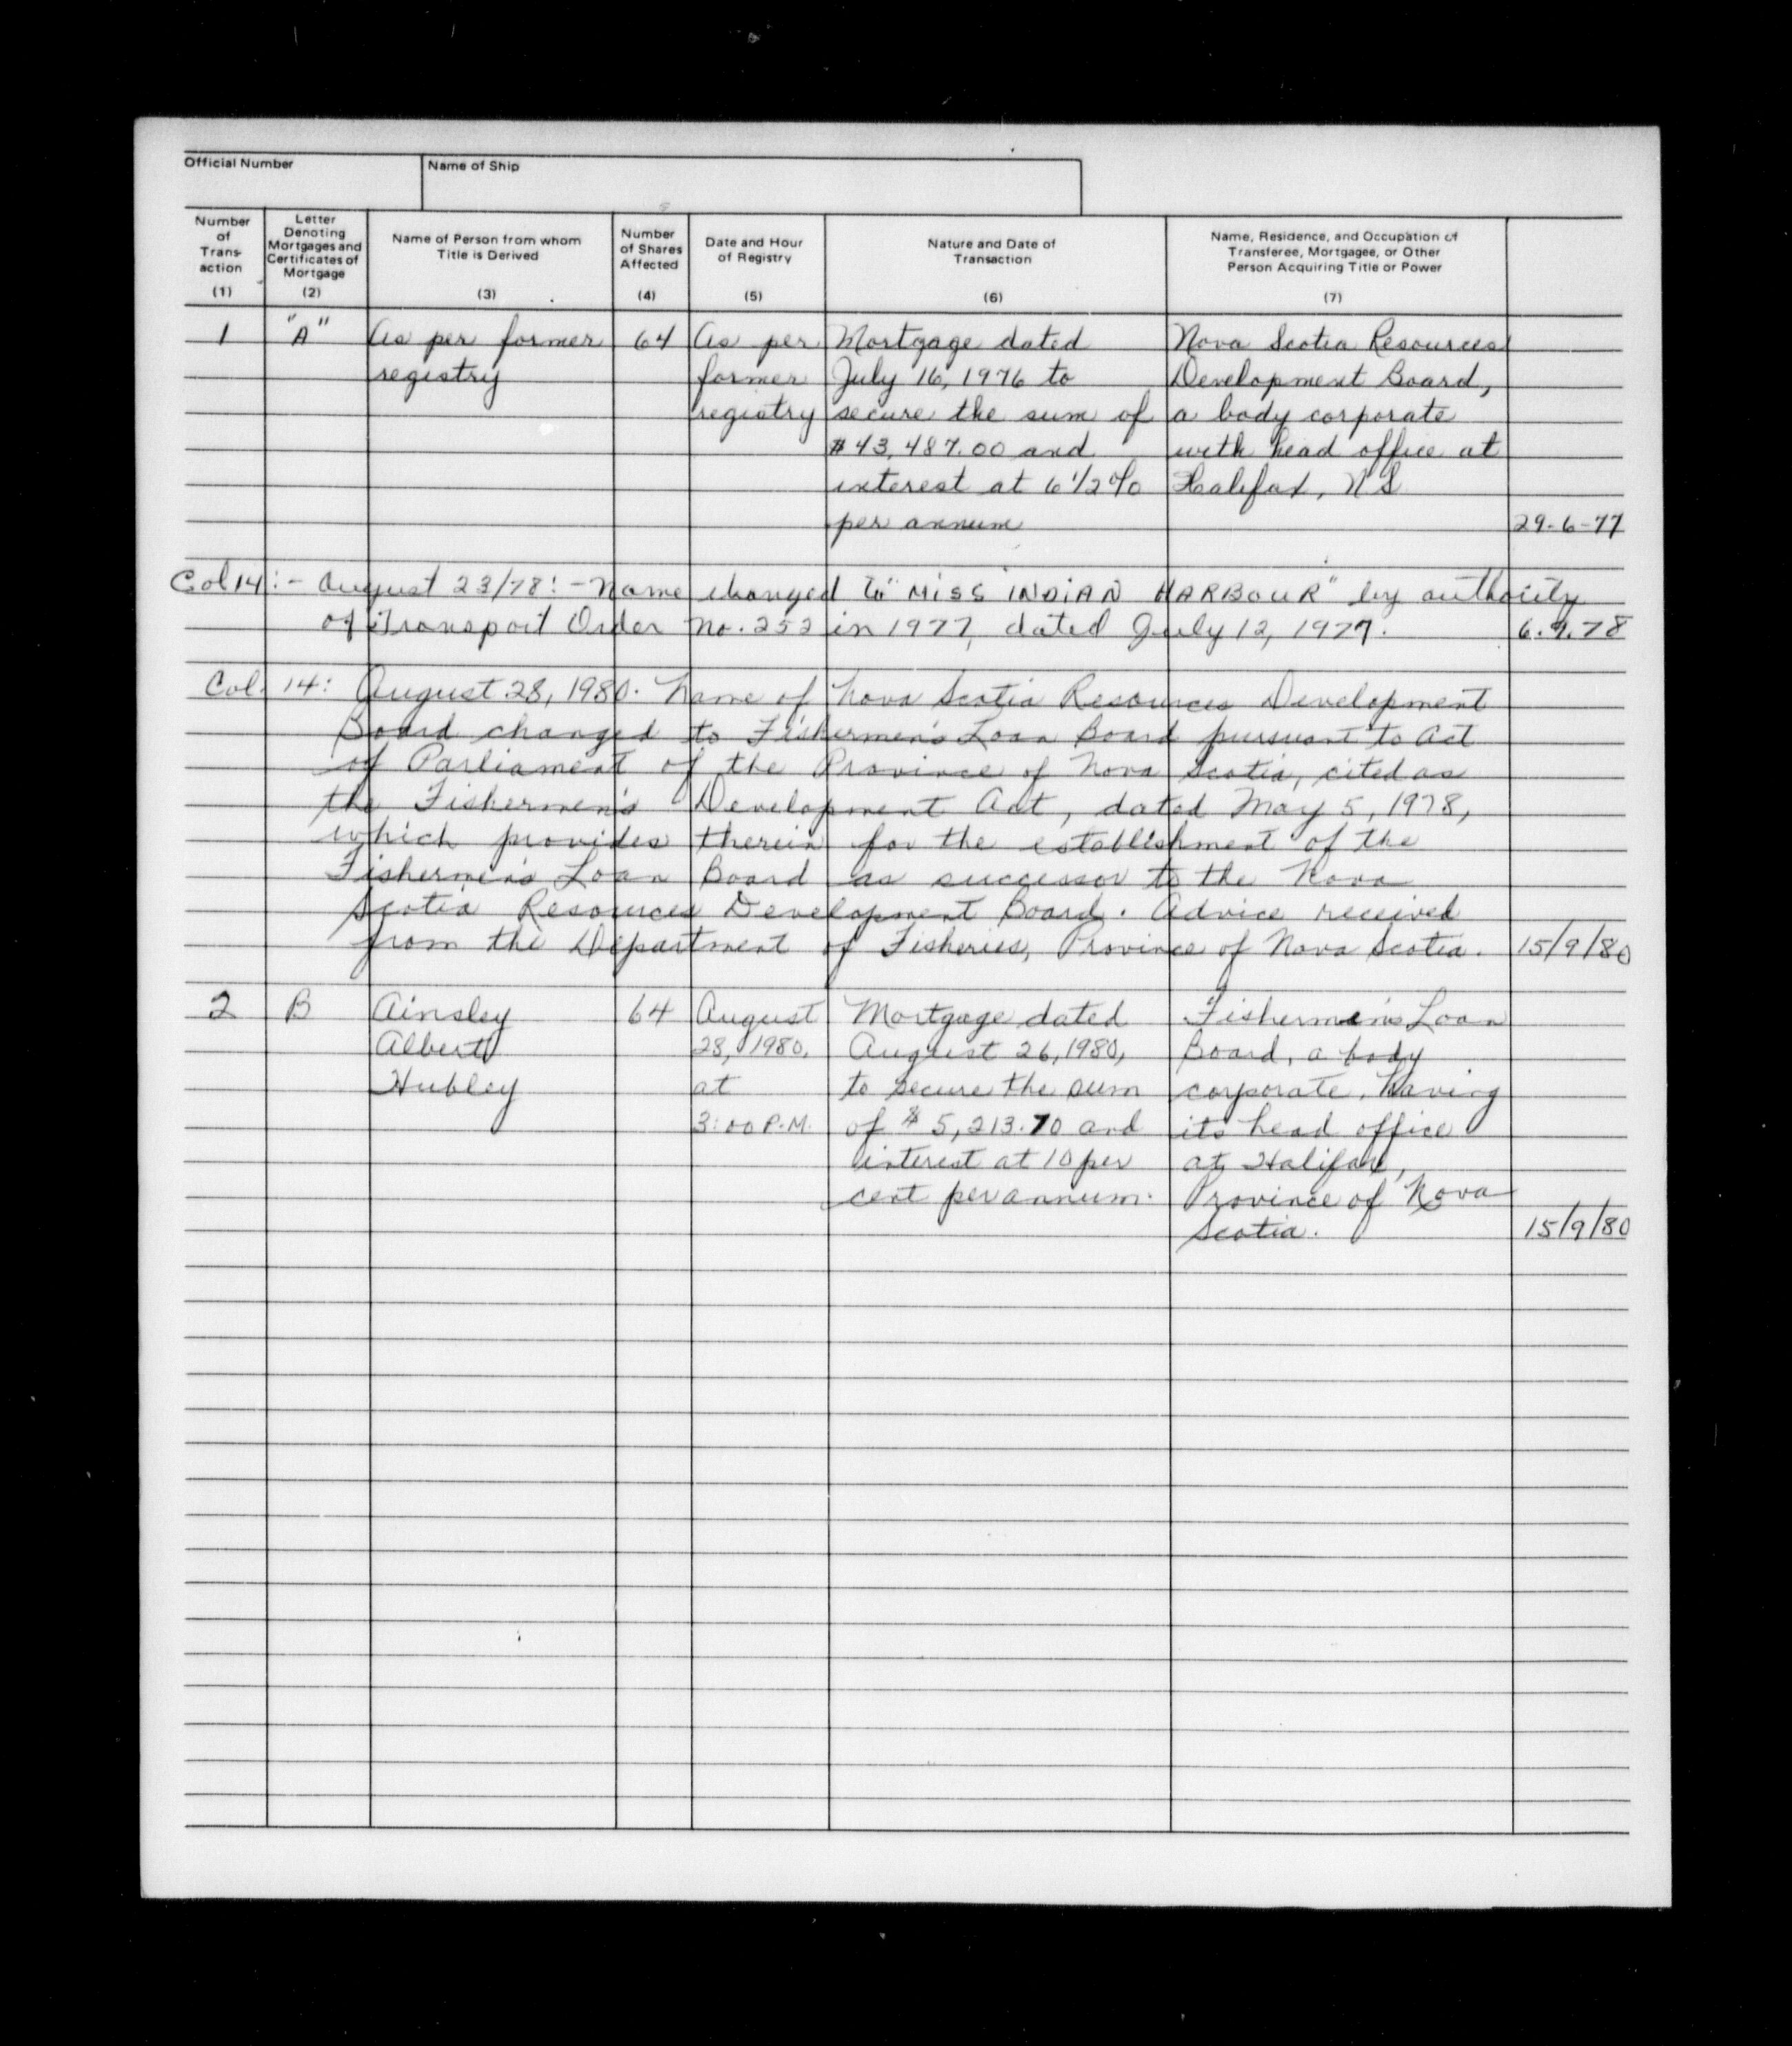 Official Number
Name of Ship
Number
of
Trans-
action
(1)
Letter
Denoting
Mortgages and
Certificates of
Mortgage
(2)
Name of Person from whom
Title is Derived
(3)
Number
of Shares
Affected
(4)
Date and Hour
of Registry
(5)
Nature and Date of
Transaction
(6)
Name, Residence, and Occupation of
Transferee, Mortgagee, or Other
Person Acquiring Title or Power
(7)
1
"A"
As per former
registry
64
As per
former
registry
Mortgage dated
July 16, 1976 to
secure the sum of
$43,487.00 and
interest at 6 1/2%
per annum
Nova Scotia Resources
Development Board,
a body corporate
with head office at
Halifax, N S
29-6-77
Col 14:- August 23/78:- Name changed to "MISS INDIAN HARBOUR" by authority
of Transport Order No. 252 in 1977, dated July 12, 1977.
6.9.78
Col. 14: August 28, 1980. Name of Nova Scotia Resources Development
Board changed to Fishermen's Loan Board pursuant to Act
of Parliament of the Province of Nova Scotia, cited as
the Fishermen's Development Act, dated May 5, 1978,
which provides therein for the establishment of the
Fishermen's Loan Board as successor to the Nova
Scotia Resources Development Board. Advice received
from the Department of Fisheries, Province of Nova Scotia.
15/9/80
2
B
Ainsley
Albert
Hubley
64
August
28, 1980,
at
3:00 P.M.
Mortgage dated
August 26, 1980,
to secure the sum
of $5,213.70 and
interest at 10 per
cent per annum.
Fishermen's Loan
Board, a body
corporate, having
its head office
at Halifax,
Province of Nova
Scotia.
15/9/80